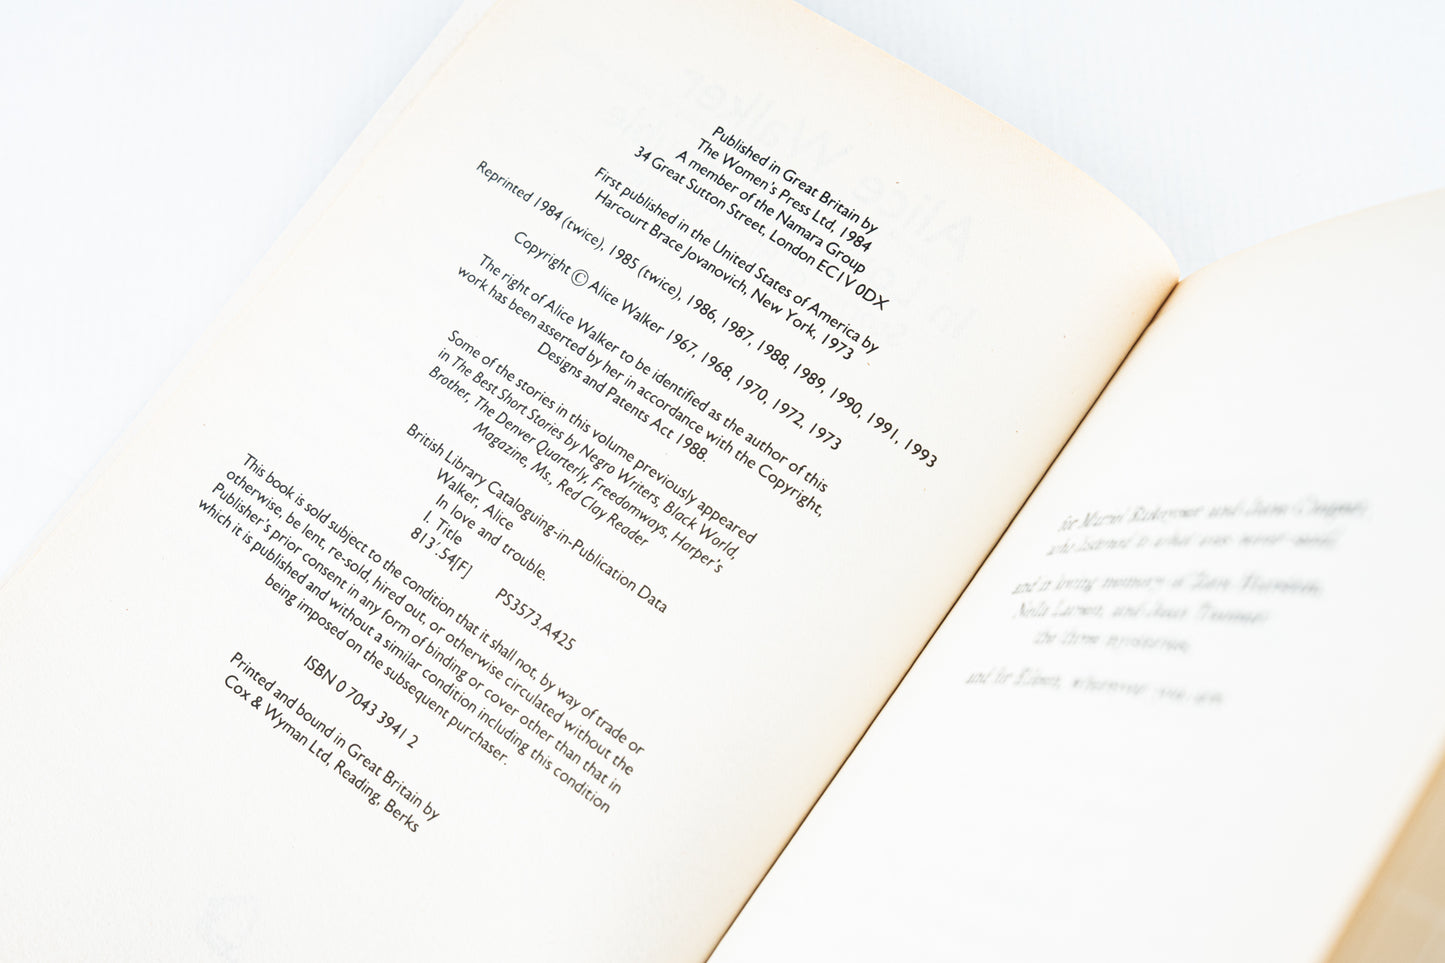 Published in Great Britain by
The Women's Press Ltd, 1984
A member of the Namara Group
34 Great Sutton Street, London EC1V 0DX
First published in the United States of America by
Harcourt Brace Jovanovich, New York, 1973
Reprinted 1984 (twice), 1985 (twice), 1986, 1987, 1988, 1989, 1990, 1991, 1993
Copyright © Alice Walker 1967, 1968, 1970, 1972, 1973
The right of Alice Walker to be identified as the author of this
work has been asserted by her in accordance with the Copyright,
Designs and Patents Act 1988.
Some of the stories in this volume previously appeared
in The Best Short Stories by Negro Writers, Black World,
Brother, The Denver Quarterly, Freedomways, Harper's
Magazine, Ms, Red Clay Reader
British Library Cataloguing-in-Publication Data
Walker, Alice
In love and trouble.
I. Title
813'.54[F] PS3573.A425
This book is sold subject to the condition that it shall not, by way of trade or
otherwise, be lent, re-sold, hired out, or otherwise circulated without the
Publisher's prior consent in any form of binding or cover other than that in
which it is published and without a similar condition including this condition
being imposed on the subsequent purchaser.
ISBN 0 7043 3941 2
Printed and bound in Great Britain by
Cox & Wyman Ltd, Reading, Berks
for Muriel Rukeyser and Jane
who listened to what was
and in loving memory of
Nella Larsen, and Jean Toomer
the three mysteries
and for Eileen, wherever you are